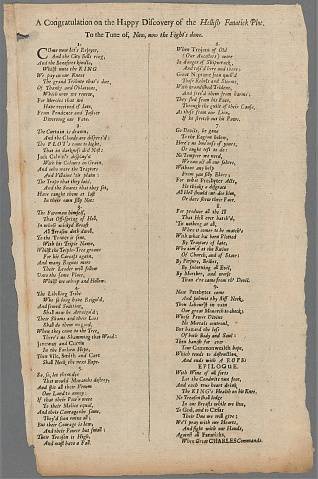 A Congratulation on the Happy Discovery of the Hellish Fanatick Plot.
To the Tune of, Now, now the Fight's done.
1.
COme now let's Rejoyce,
And the City Bells ring,
And the Bonefires kindle,
Whilst unto the KING
We pay on our Knees
The grand Tribute that's due,
Of Thanks and Oblations,
Which over we renew,
For Mercies that we
Have receiv'd of late,
From Providence and Justice
Directing our Fate.
2.
The Curtain is drawn,
And the Clouds are dispers'd:
The PLOT's come to light,
That in darkness did Nest:
Jack Calvin's display'd
With his Colours in Grain,
And who were the Traytors
And Villains 'tis plain:
The Traps that they laid,
And the Snares that they set,
Have caught them at last
In their own filly Net:
3.
The Foreman himself,
That Off-spring of Hell,
In whose wicked Breast
All Treason doth dwell,
To the Tower is sent,
With his Tropic Name,
Whilst the Triple-Tree groans
For his Carcass again,
And many Rogues more
Their Leader will follow
Unto the same Place,
Whilst we whoop and Hollow.
4.
The Libelling Tribe
Who so long have Reign'd,
And fomed Sedition,
Shall now be Arraign'd;
Their Shams and their Lies
Shall do them no good,
When they come to the Tree,
There's no Shamming that Wood:
Jenkins and Curtis
In the Forlorn Hope,
Then Vile, Smith and Care
Shall Neck the next Rope.
5.
So, so, let them die
That would Monarchs destroy,
And spit all their Venom
Our Land to annoy:
If that their Pow'r were
To their Malice equal,
And their Courage the same,
They'd soon ruine all;
But their Courage is low,
And their Power but small:
Their Treason is High,
And must have a Fall.
6.
When Traytors of Old
(Our Ancestors) were
In danger of Shipwrack,
And toss'd here and there
Great Neptune soon quell'd
Those Rebels and Storms,
With
And freed them from harms:
They fled from his Face,
Through the guilt of their Cause,
As these from our Lion,
If he stretch out his Paws.
7.
Go Devils, be gone
To the Region below,
Here's no business of yours,
Or ought left to do:
No Tempter we need,
We can all our selves,
Without any help
From you silly Elves:
For what Presbyter Asks,
He thinks a disgrace
All Hell should out-doe him,
Or dare shew their Face.
8.
For produce all the Ill
That Hell ever hatch'd,
'Tis nothing at all,
When it comes to be match'd
With what has been Plotted
By Traytors of late,
Who aim'd at the Ruine
Of Church, and of State:
By Perjury, Bribes,
By suborning all Evil,
By Murther, and worse
Than e're came from th' Devil.
9.
Now Presbyter come
And submit thy stiff Neck,
Thou labour'st in vain
Our great Monarch to check;
Whose Power Divine
No Mortals controul,
But hazard the loss
Of both Body and Soul:
Then hands for ever
Your Commonwealth hope,
Which tends to destruction,
And ends with A ROPE.
EPILOGUE.
With Wine of all sorts
Let the Conduits run free,
And each true heart drink,
The KING's Health on his Knee.
No Treason shall lodge
In our Breasts while we live,
To God, and to Cæsar
Their Due we will give;
We'l pray with our Hearts,
And fight with our Hands,
Against all Fanaticks,
When Great CHARLES Commands.